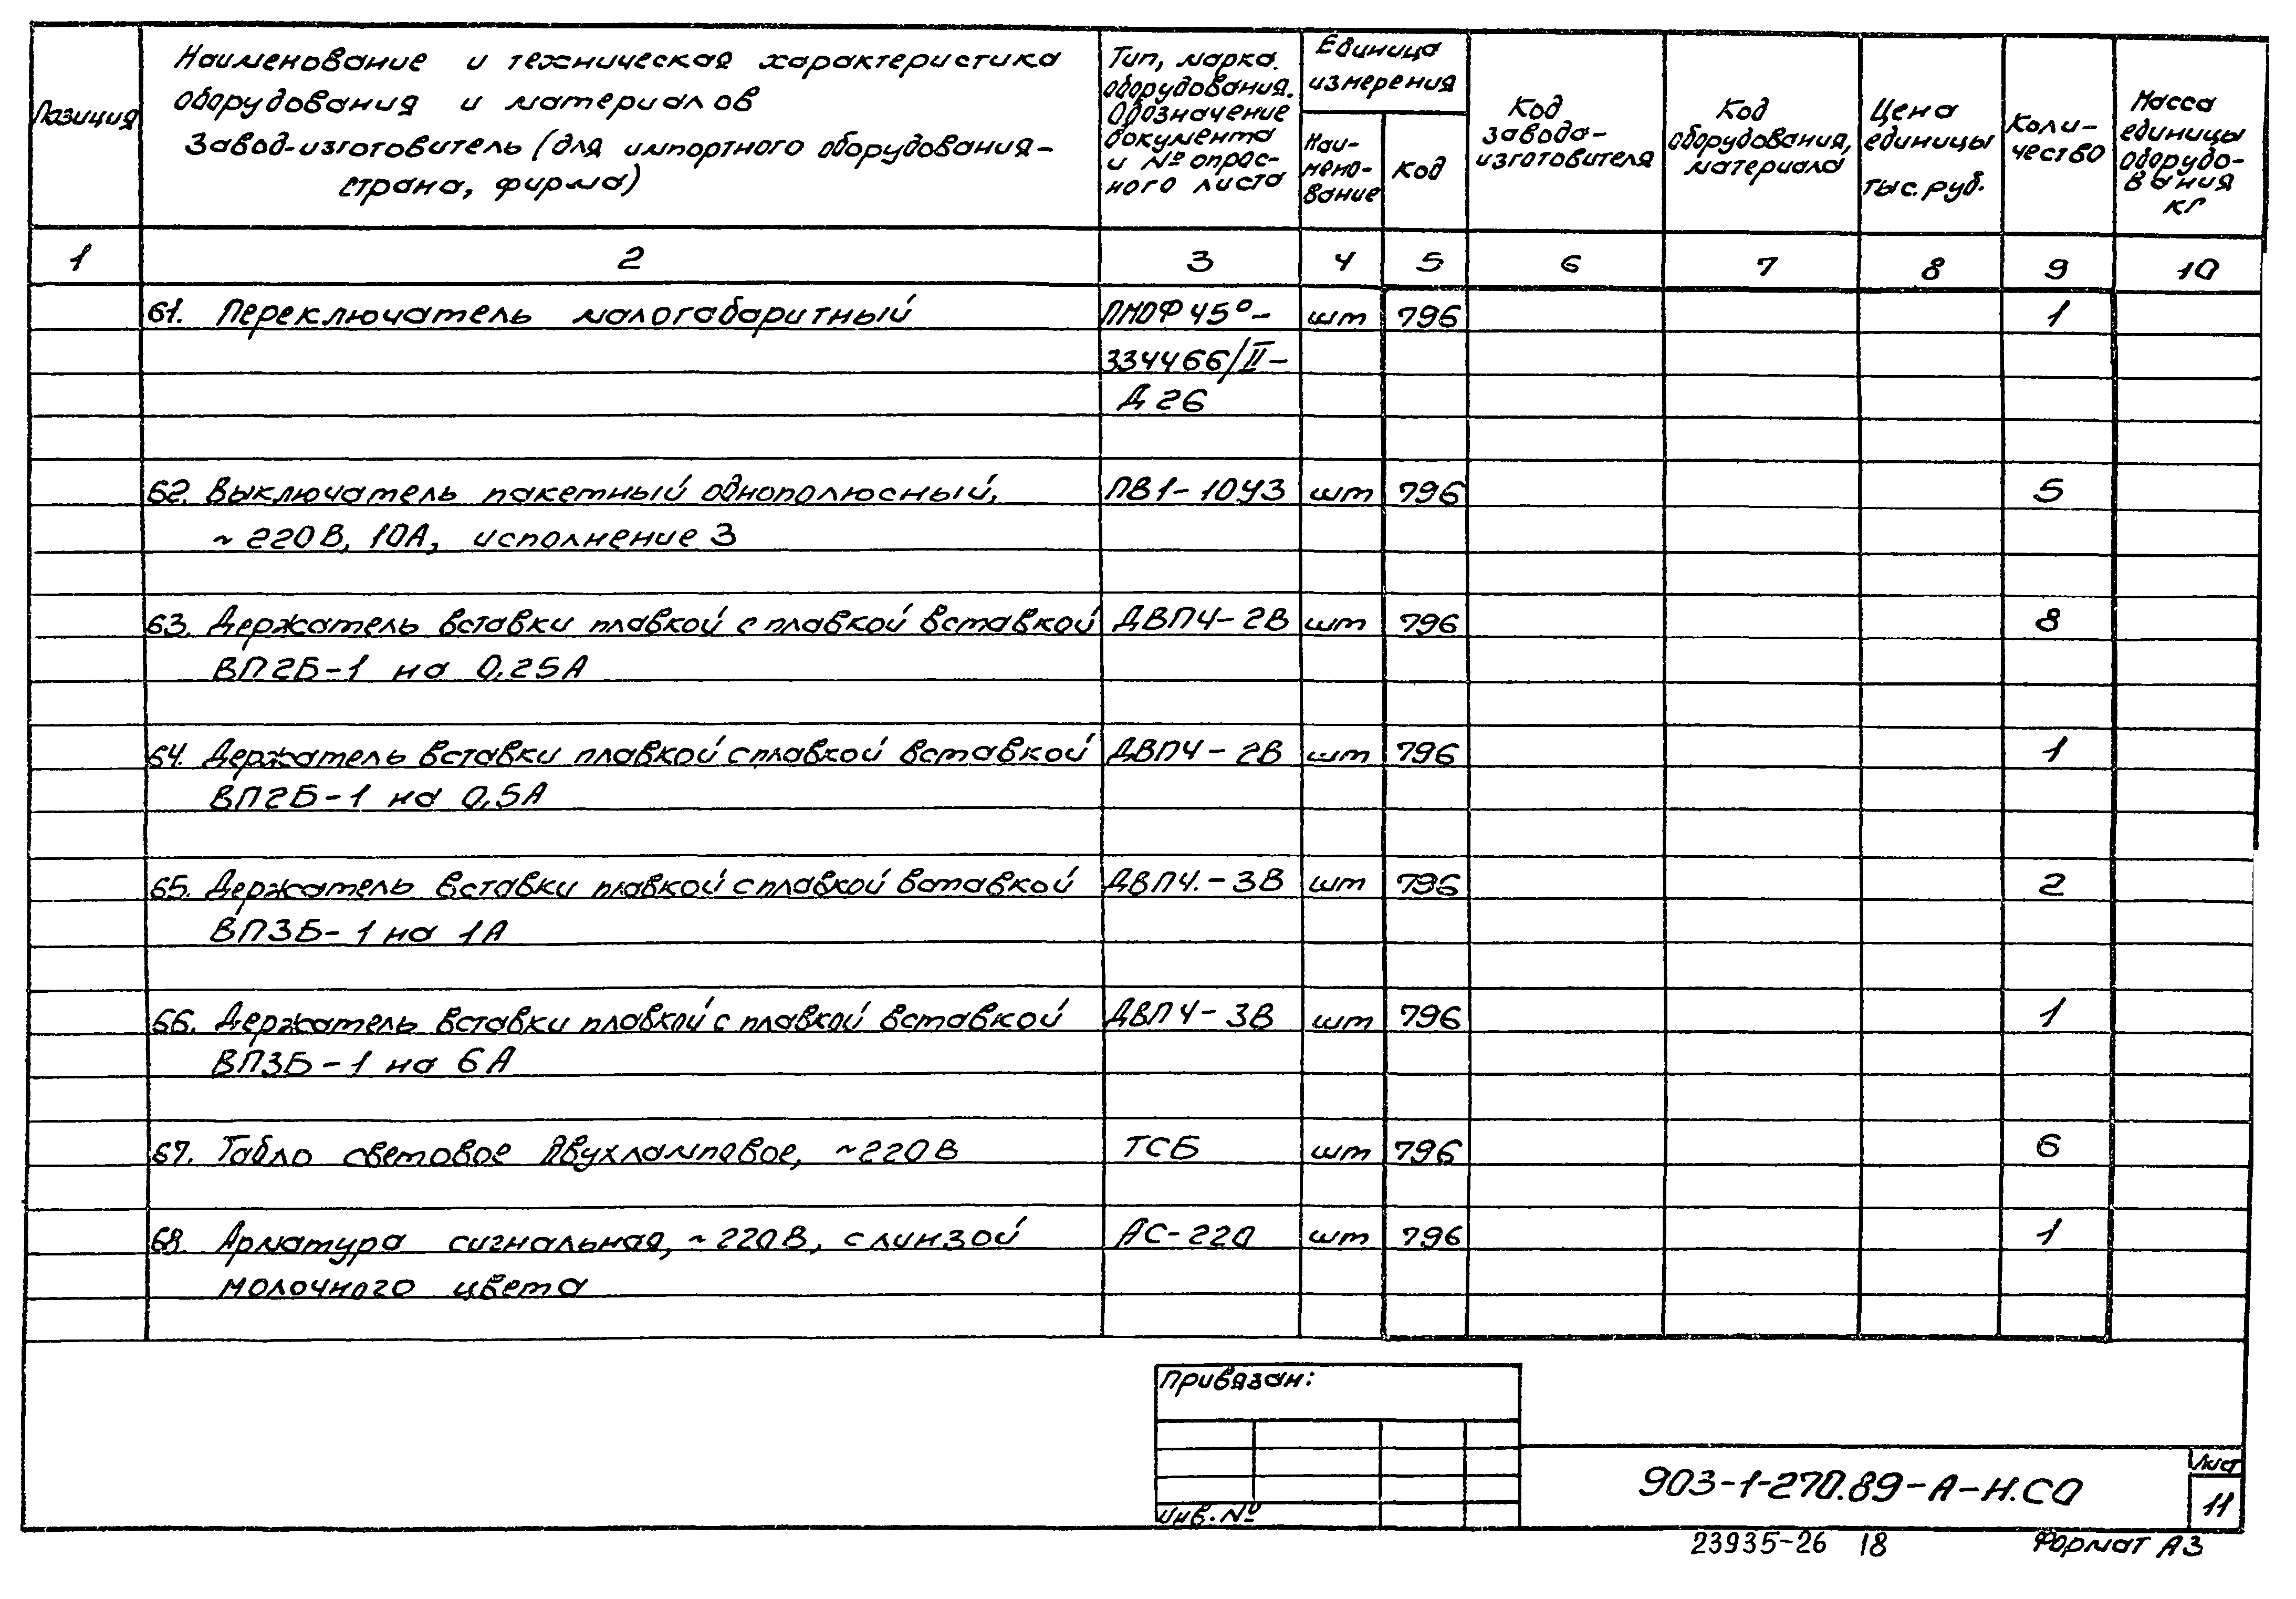 Позиция
Наименование и техническая характеристика
оборудования и материалов
Завод-изготовитель (для импортного оборудования-
страна, фирма)
Тип, марка.
оборудования.
Обозначение
документа
и № опрос-
ного листа
Единица
измерения
Наи-
мено-
вание
Код
Код
завода-
изготовителя
Код
оборудования,
материала
Цена
единицы
тыс. руб.
Коли-
чество
Масса
единицы
оборудо-
вания
кг
1 2 3 4 5 6 7 8 9 10
61. Переключатель малогабаритный ПМОФ 45°- шт 796 1
334466/II-
Д 26
62. Выключатель пакетный однополюсный, ПВ1-10У3 шт 796 5
~ 220 В, 10А, исполнение 3
63. Держатель вставки плавкой с плавкой вставкой ДВП4-2В шт 796 8
ВП2Б-1 на 0,25А
64. Держатель вставки плавкой с плавкой вставкой ДВП4-2В шт 796 1
ВП2Б-1 на 0,5А
65. Держатель вставки плавкой с плавкой вставкой ДВП4.-3В шт 796 2
ВП3Б-1 на 1А
66. Держатель вставки плавкой с плавкой вставкой ДВП4-3В шт 796 1
ВП3Б-1 на 6А
67. Табло световое двухламповое, ~220 В ТСБ шт 796 6
68. Арматура сигнальная, ~220 В, с линзой АС-220 шт 796 1
молочного цвета
Привязан:
Инв. №
903-1-270.89-А-Н.СО
Лист
11
23935-26 18 Формат А3